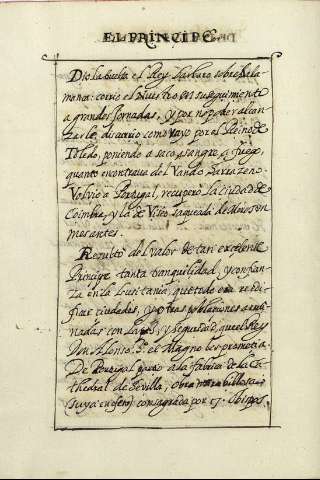 EL PRINCIPE
Dio la buelta el Rey barbaro sobre Sala-
manca: corrio el Nuestro en su seguimiento
a grandes Jornadas, y por no poder alcan-
zarle, discurrio como rayo por el Reino de
Toledo, poniendo a saco, a sangre, a fuego,
quanto encontrava del Vando Sarrazeno.
Volvio a Portugal, recuperò la ciudad de
Coimbra, y la de Viseo saqueada de Moros seis
mes antes.
Resultò del valor de tan excelente
Principe tanta tranquilidad, y confian-
za en la Lusitania, que todo era reedi-
ficar ciudades, y otras poblaciones arrui-
nadas con la paz, y seguridad, que el Rey
Don Alonso 3. el Magno les prometia.
De Portugal passò a la fabrica de la Ca-
thedral de Sevilla, obra maravillosa
(suya en efeto) consagrada por 17. Obispos.